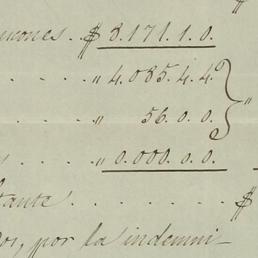 uciones. . $ 8.171.1.0.
. . . . . „ 4.085.4.4. „
. . . . . „ 56.0.0.
. . . . . „ 0.000.0.0.
tante. . . . . . . . $
por la indemni-